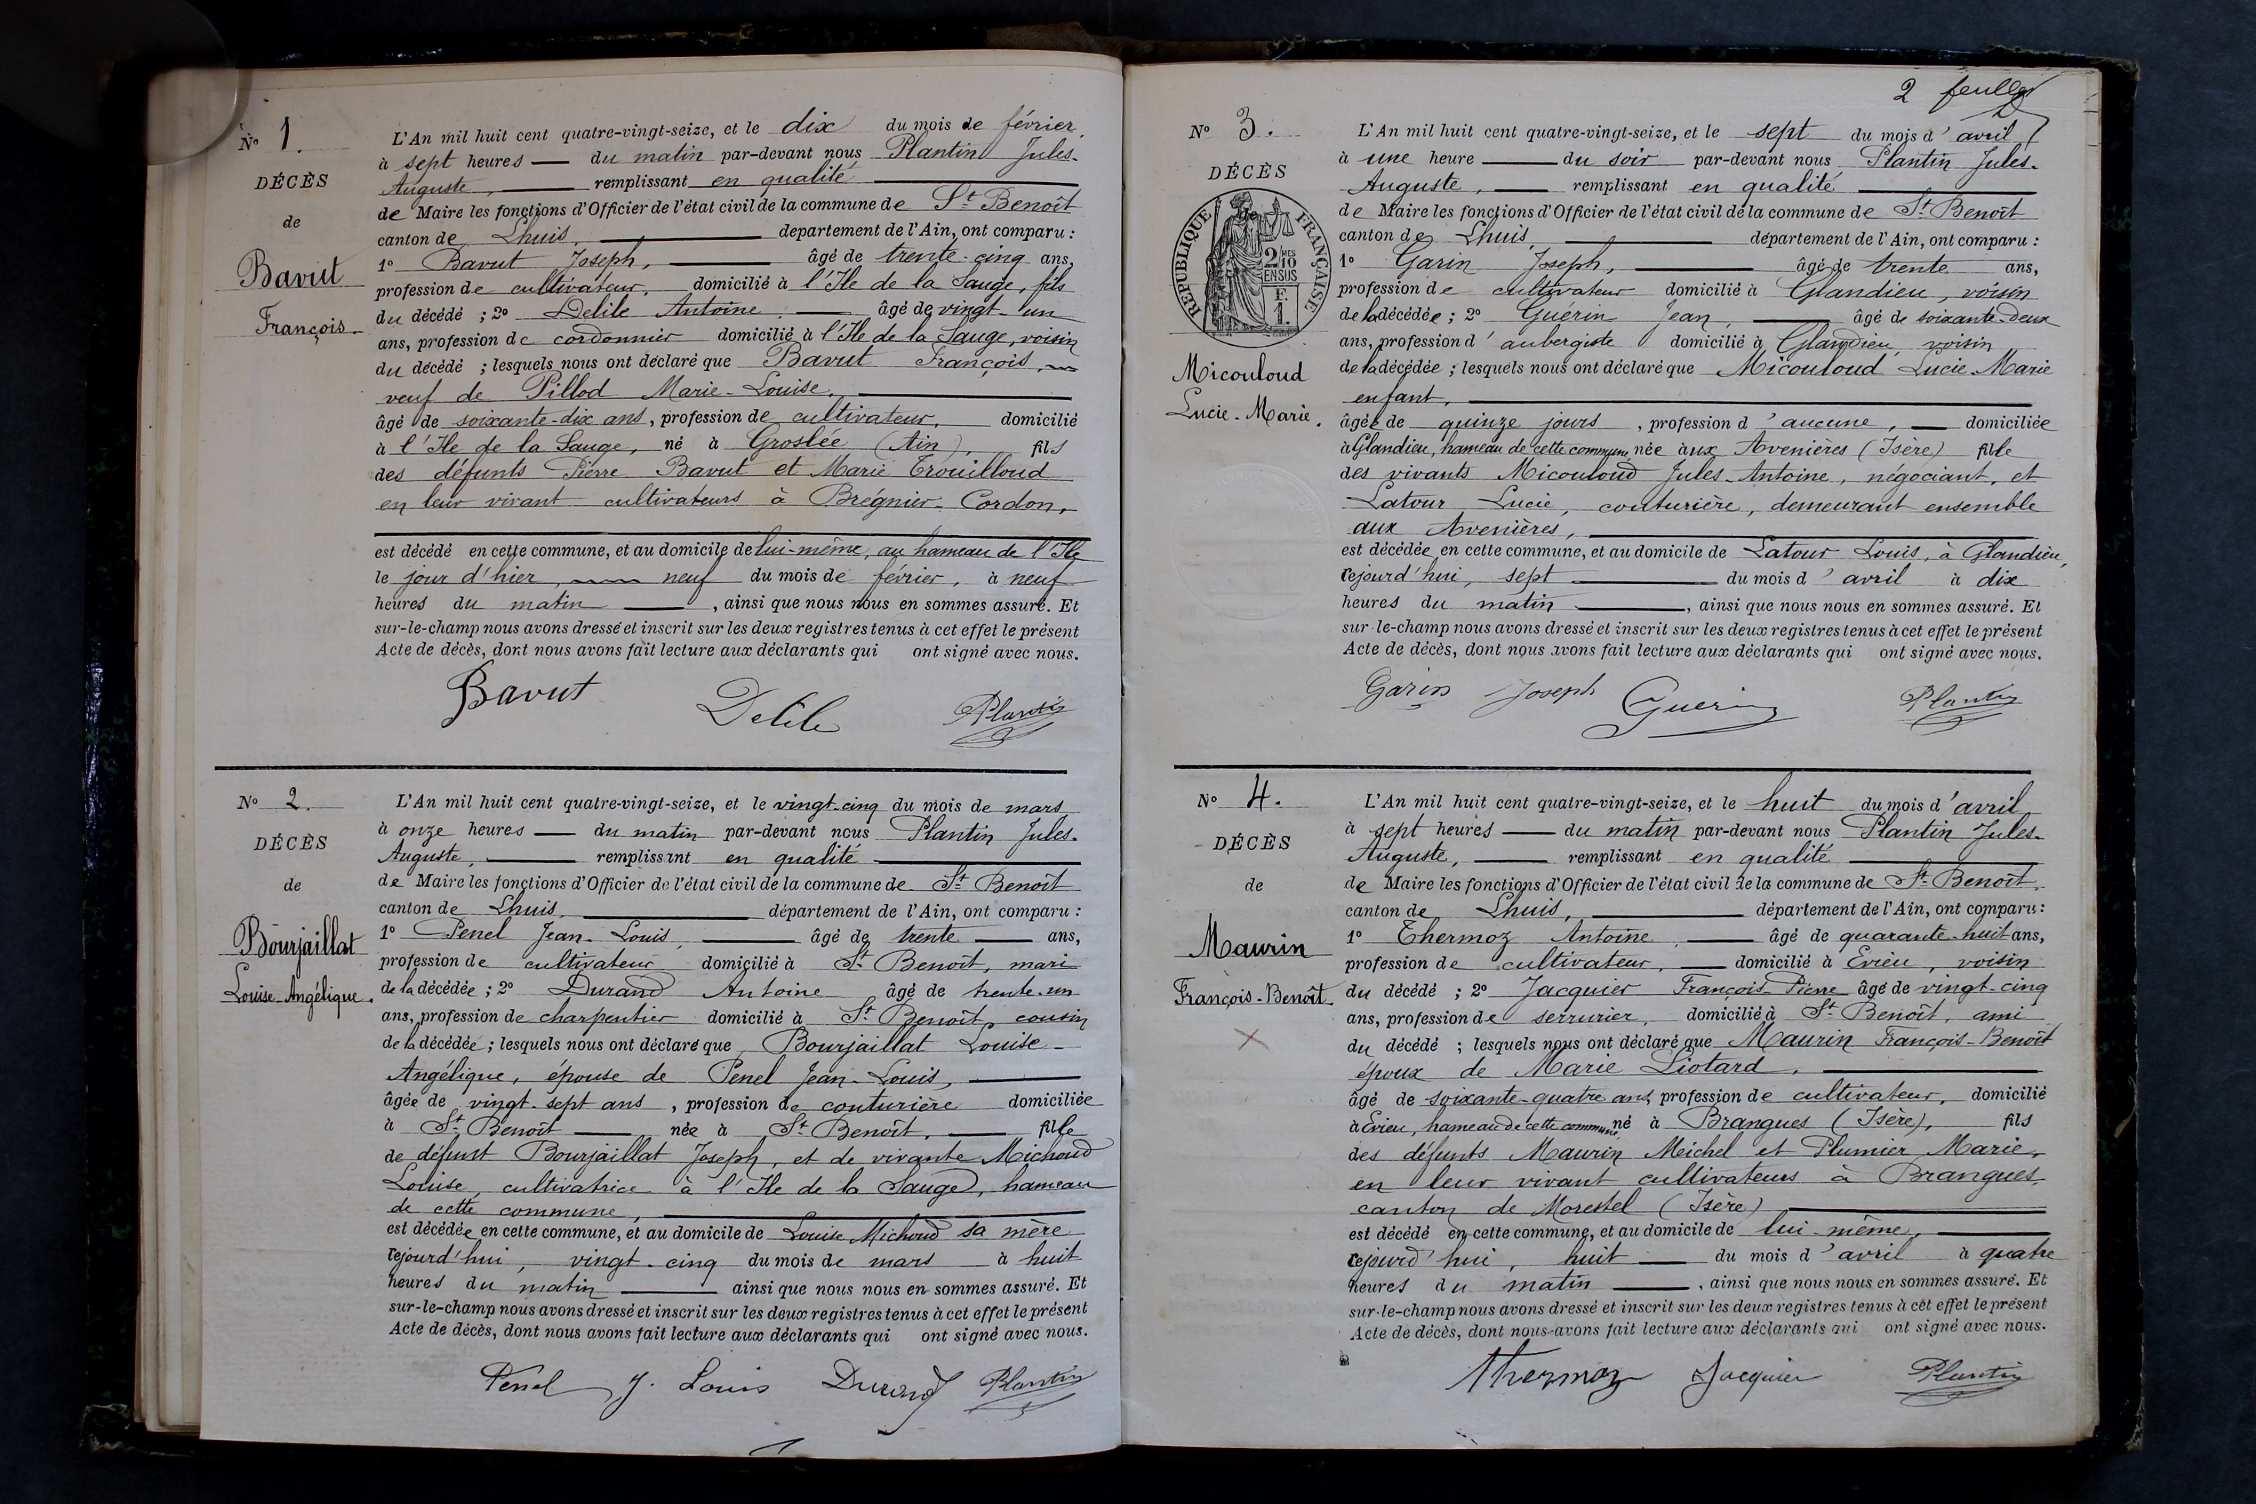 N° 1.
DÉCÈS
de
Bavut
François
L'An mil huit cent quatre-vingt-seize, et le dix du mois de février,
à sept heures du matin par-devant nous Plantin Jules-
Auguste, remplissant en qualité
de Maire les fonctions d'Officier de l'état civil de la commune de St Benoît
canton de Lhuis, département de l'Ain, ont comparu :
1° Bavut Joseph, âgé de trente-cinq ans,
profession de cultivateur, domicilié à l'Ile de la Sauge, fils
du décédé ; 2° Delile Antoine, âgé de vingt-un
ans, profession de cordonnier domicilié à l'Ile de la Sauge, voisin
du décédé ; lesquels nous ont déclaré que Bavut François,
veuf de Pillod Marie-Louise,
âgé de soixante-dix ans, profession de cultivateur, domicilié
à l'Ile de la Sauge, né à Groslée (Ain), fils
des défunts Pierre Bavut et Marie Trouilloud
en leur vivant cultivateurs à Brégnier-Cordon,
est décédé en cette commune, et au domicile de lui-même, au hameau de l'Ile
le jour d'hier, neuf du mois de février, à neuf
heures du matin, ainsi que nous nous en sommes assuré. Et
sur-le-champ nous avons dressé et inscrit sur les deux registres tenus à cet effet le présent
Acte de décès, dont nous avons fait lecture aux déclarants qui ont signé avec nous.
Bavut Delile Plantin
N° 2.
DÉCÈS
de
Bourjaillat
Louise-Angélique.
L'An mil huit cent quatre-vingt-seize, et le vingt-cinq du mois de mars
à onze heures du matin par-devant nous Plantin Jules-
Auguste, remplissant en qualité
de Maire les fonctions d'Officier de l'état civil de la commune de St Benoît
canton de Lhuis, département de l'Ain, ont comparu :
1° Penel Jean-Louis, âgé de trente ans,
profession de cultivateur domicilié à St Benoît, mari
de la décédée ; 2° Durand Antoine âgé de trente-un
ans, profession de charpentier domicilié à St Benoît, cousin
de la décédée ; lesquels nous ont déclaré que Bourjaillat Louise-
Angélique, épouse de Penel Jean-Louis,
âgée de vingt-sept ans, profession de couturière domiciliée
à St Benoît née à St Benoît, fille
de défunt Bourjaillat Joseph, et de vivante Michoud
Louise, cultivatrice à l'Ile de la Sauge, hameau
de cette commune,
est décédée en cette commune, et au domicile de Louise Michoud sa mère
cejourd'hui, vingt-cinq du mois de mars à huit
heures du matin ainsi que nous nous en sommes assuré. Et
sur-le-champ nous avons dressé et inscrit sur les deux registres tenus à cet effet le présent
Acte de décès, dont nous avons fait lecture aux déclarants qui ont signé avec nous.
Penel J. Louis Durand Plantin
2 feuillet
N° 3.
DÉCÈS
RÉPUBLIQUE FRANÇAISE
2 MES
10
EN SUS
F.
1.
Micouloud
Lucie-Marie.
L'An mil huit cent quatre-vingt-seize, et le sept du mois d'avril
à une heure du soir par-devant nous Plantin Jules-
Auguste, remplissant en qualité
de Maire les fonctions d'Officier de l'état civil de la commune de St Benoît
canton de Lhuis, département de l'Ain, ont comparu :
1° Garin Joseph, âgé de trente ans,
profession de cultivateur domicilié à Glandieu, voisin
de la décédée ; 2° Guérin Jean, âgé de soixante-deux
ans, profession d'aubergiste domicilié à Glandieu, voisin
de la décédée ; lesquels nous ont déclaré que Micouloud Lucie-Marie
enfant,
âgée de quinze jours, profession d'aucune, domiciliée
à Glandieu, hameau de cette commune, née aux Avenières (Isère) fille
des vivants Micouloud Jules-Antoine, négociant, et
Latour Lucie, couturière, demeurant ensemble
aux Avenières,
est décédée en cette commune, et au domicile de Latour Louis, à Glandieu,
cejourd'hui, sept du mois d'avril à dix
heures du matin, ainsi que nous nous en sommes assuré. Et
sur-le-champ nous avons dressé et inscrit sur les deux registres tenus à cet effet le présent
Acte de décès, dont nous avons fait lecture aux déclarants qui ont signé avec nous.
Garin Joseph Guérin Plantin
N° 4.
DÉCÈS
de
Maurin
François-Benoît.
L'An mil huit cent quatre-vingt-seize, et le huit du mois d'avril
à sept heures du matin par-devant nous Plantin Jules-
Auguste, remplissant en qualité
de Maire les fonctions d'Officier de l'état civil de la commune de St Benoît,
canton de Lhuis, département de l'Ain, ont comparu :
1° Thermoz Antoine, âgé de quarante-huit ans,
profession de cultivateur, domicilié à Evieu, voisin
du décédé ; 2° Jacquier François-Pierre âgé de vingt-cinq
ans, profession de serrurier, domicilié à St Benoît, ami
du décédé ; lesquels nous ont déclaré que Maurin François-Benoît
époux de Marie Liotard,
âgé de soixante-quatre ans, profession de cultivateur, domicilié
à Evieu, hameau de cette commune, né à Brangues (Isère), fils
des défunts Maurin Michel et Plumier Marie,
en leur vivant cultivateurs à Brangues,
canton de Morestel (Isère)
est décédé en cette commune, et au domicile de lui-même,
cejourd'hui, huit du mois d'avril à quatre
heures du matin, ainsi que nous nous en sommes assuré. Et
sur-le-champ nous avons dressé et inscrit sur les deux registres tenus à cet effet le présent
Acte de décès, dont nous avons fait lecture aux déclarants qui ont signé avec nous.
Thermoz Jacquier Plantin